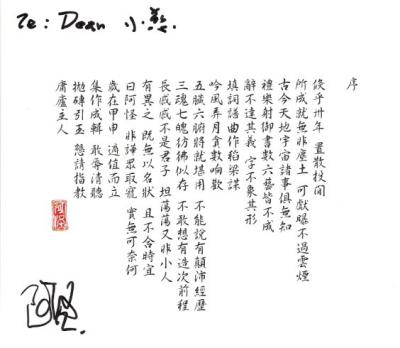 To: Dean 小
序
倏乎卅年 置散投閒
所成就無非塵土 可獻曝不過雲煙
古今天地宇宙諸事俱無知
禮樂射御書數六藝皆不成
辭不達其義 字不象其形
填詞譜曲作稻粱謀
吟風弄月貪數响歡
五臟六腑將就堪用 不能說有顛沛經歷
三魂七魄彷彿似存 不敢想有造次前程
長慼慼不是君子 坦蕩蕩又非小人
有異之 既無以名狀 且不合時宜
曰阿怪 非譁眾取寵 實無可奈何
歲在甲申 適值而立
集作成輯 敢辱清聽
拋磚引玉 懇請指教
庸廬主人
阿怪